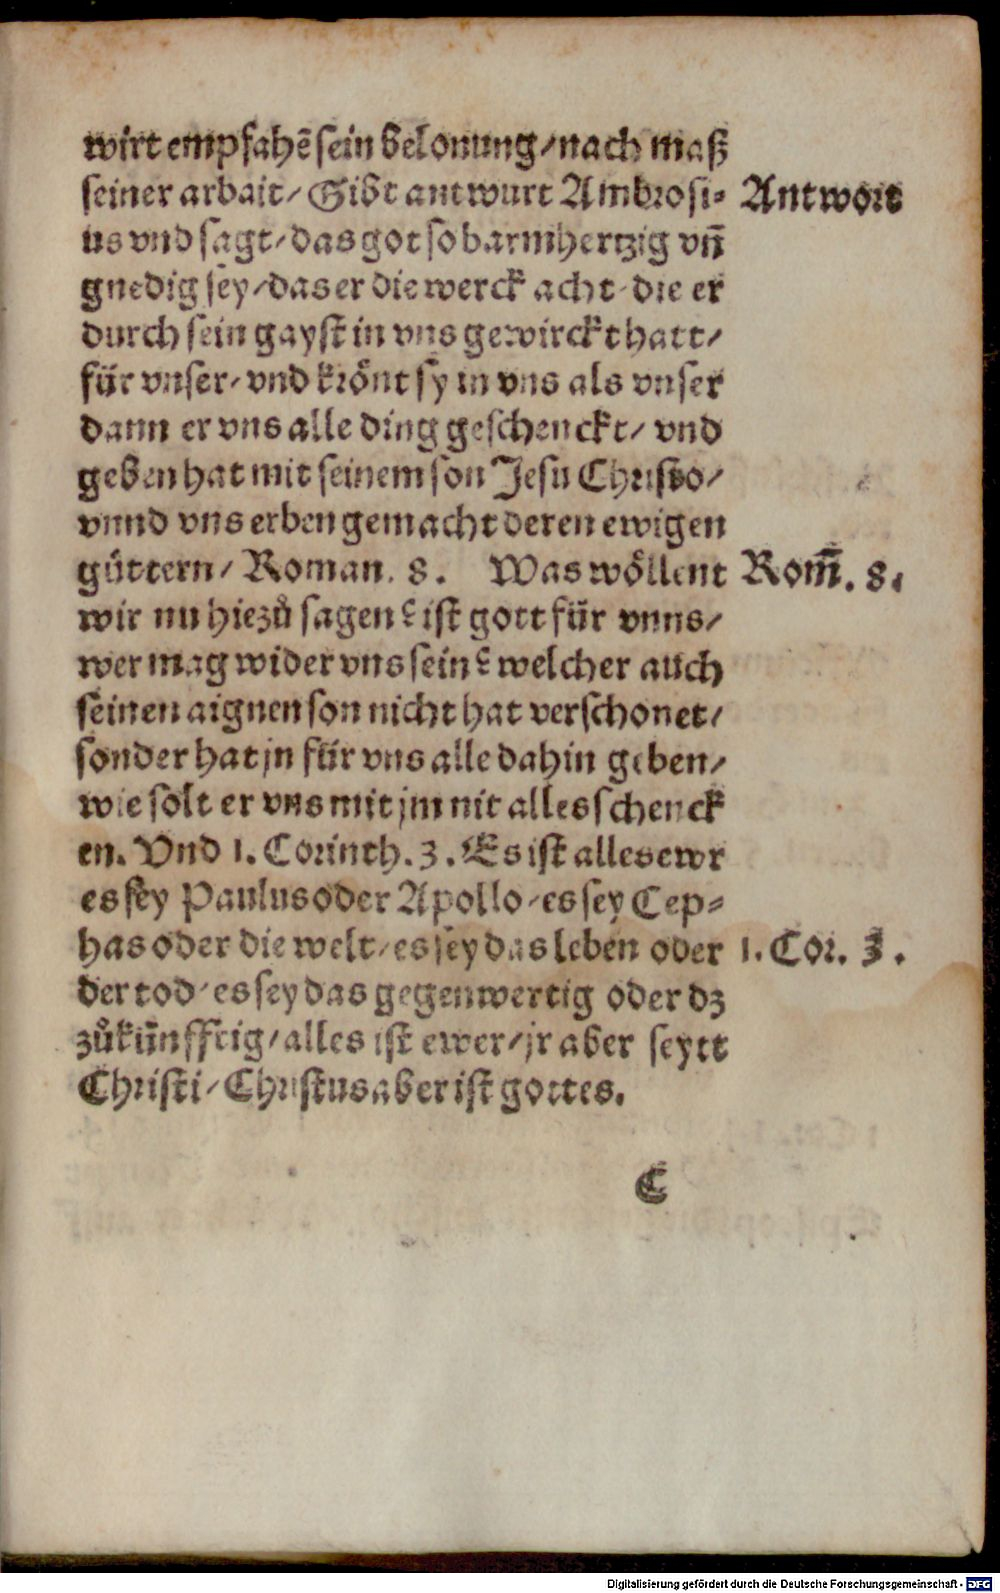 wirt empfahē sein belonung/nach maß
seiner arbait/ Gibt antwurt Ambrosi⸗
Antwort
us vnd sagt/das got so barmhertzig vñ
gnedig sey/das er die werck acht/die er
durch sein gayst in vns gewirckt hatt/
für vnser/vnd krönt sy in vns als vnser
dann er vns alle ding geschenckt/ vnd
geben hat mit seinem son Jesu Christo/
vnnd vns erben gemacht deren ewigen
güttern/ Roman. 8. Was wöllent
Rom̄. 8.
wir nu hiezů sagen? ist gott für vnns/
wer mag wider vns sein? welcher auch
seinen aignen son nicht hat verschonet/
sonder hat jn für vns alle dahin geben/
wie solt er vns mit jm nit alles schenck
en. Vnd 1. Corinth. 3. Es ist alles ewr
es sey Paulus oder Apollo/es sey Cep⸗
has oder die welt/es sey das leben oder
1. Cor. 3.
der tod/es sey das gegenwertig oder dz
zůkünfftig/alles ist ewer/jr aber seytt
Christi/Christus aber ist gottes.
C
Digitalisierung gefördert durch die Deutsche Forschungsgemeinschaft - DFG